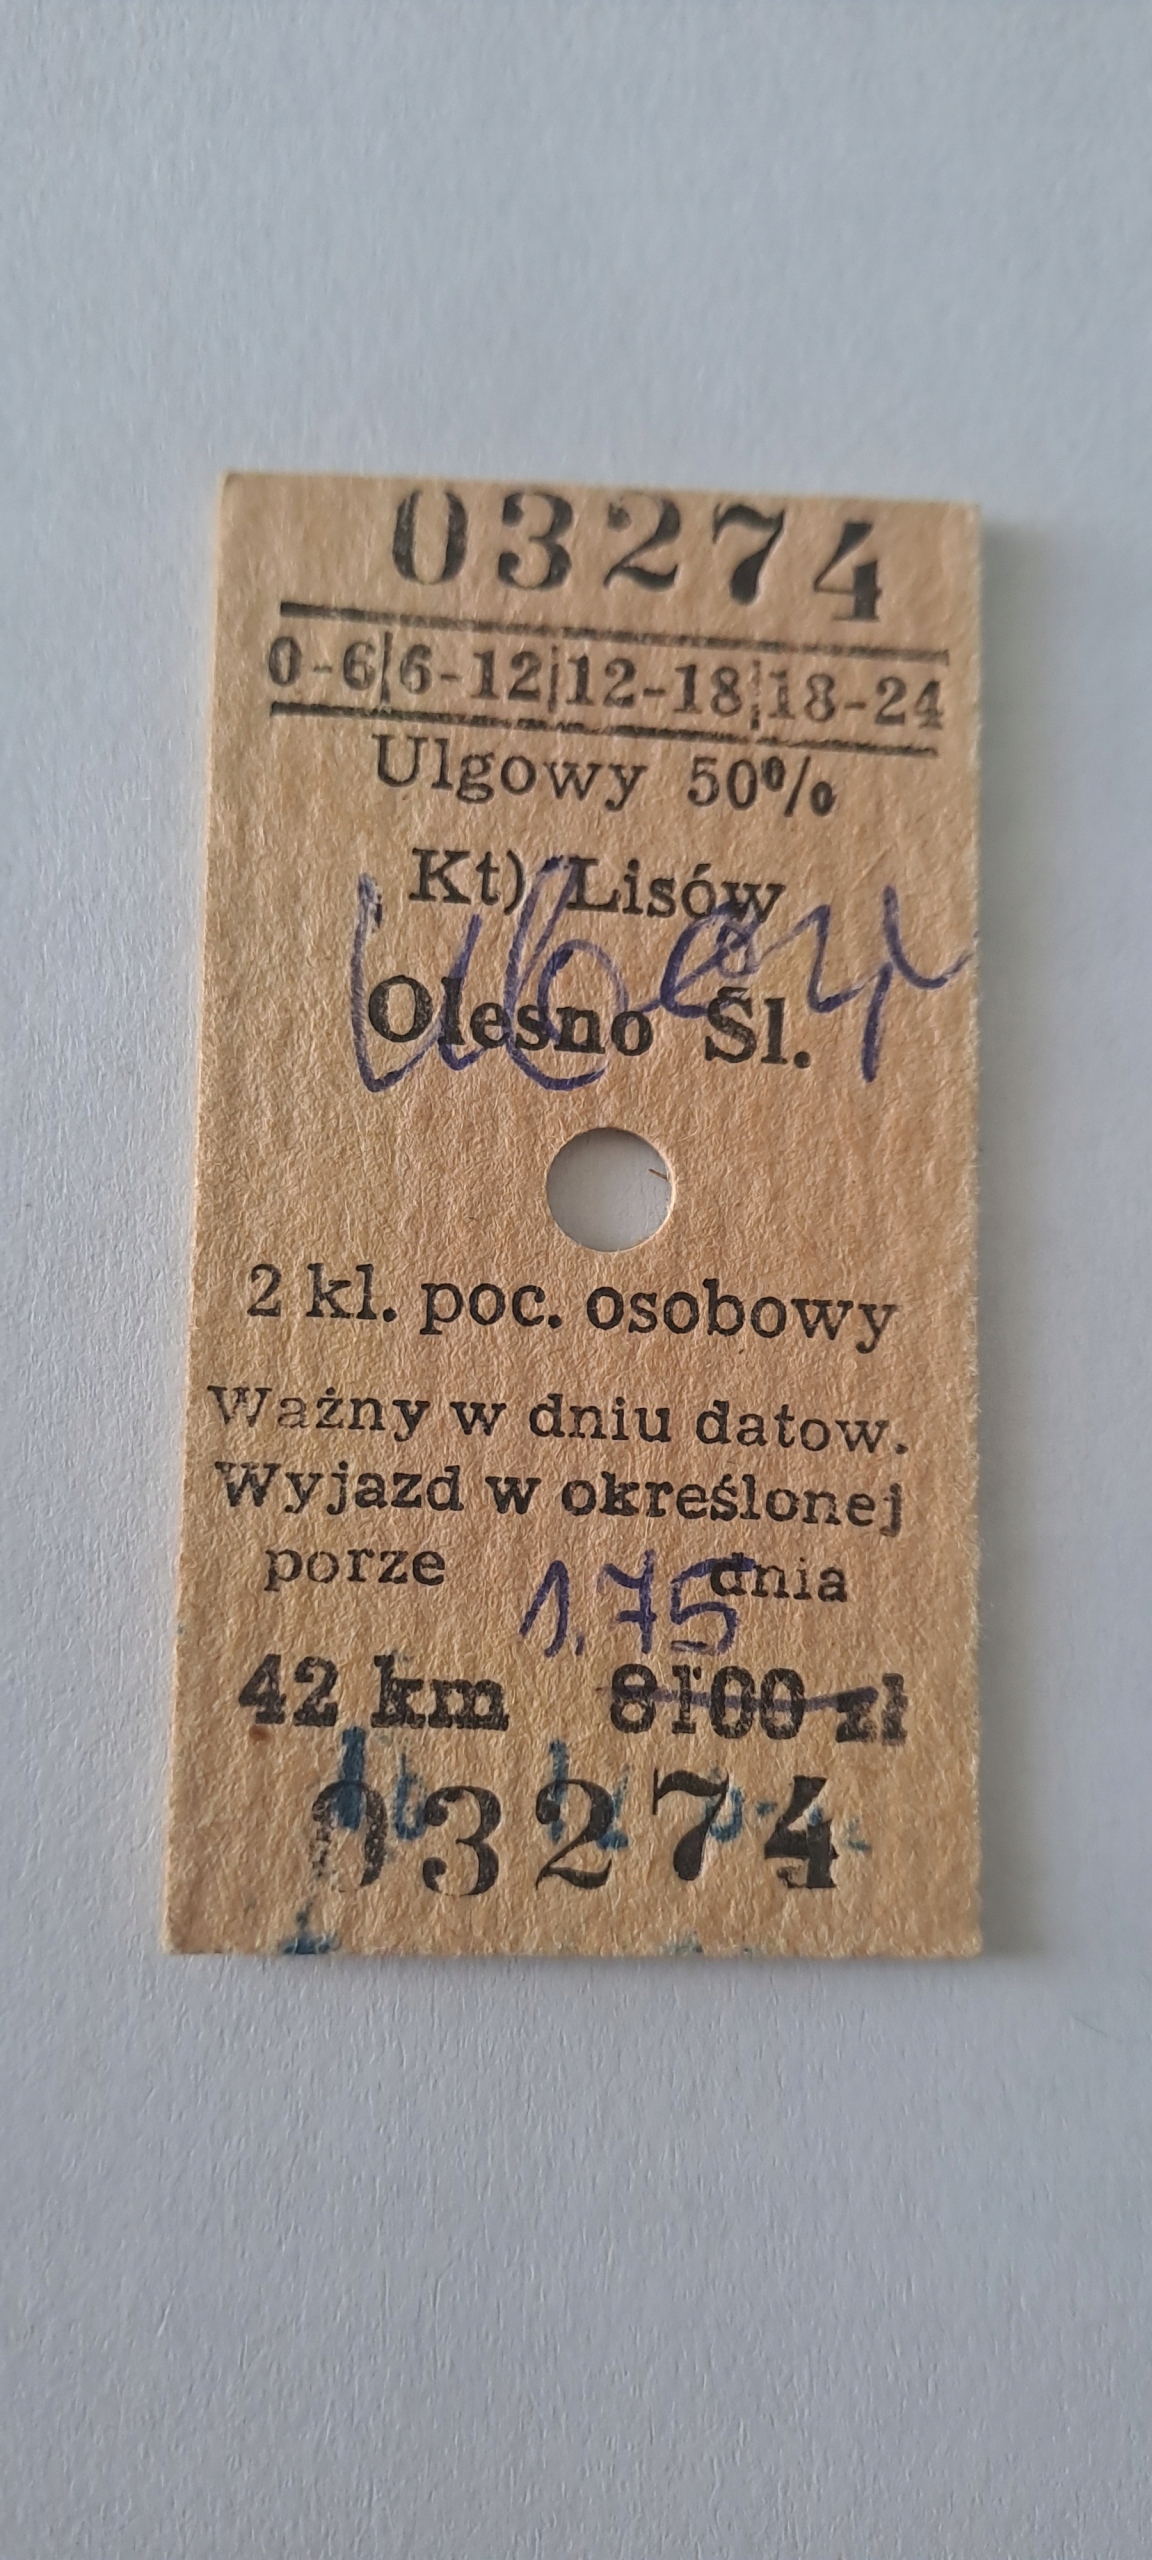 03274
0-6|6-12|12-18|18-24
Ulgowy 50%
Kt) Lisów
Olesno Śl.
2 kl. poc. osobowy
Ważny w dniu datow.
Wyjazd w określonej
porze dnia
1.75
42 km 8100 zł
03274